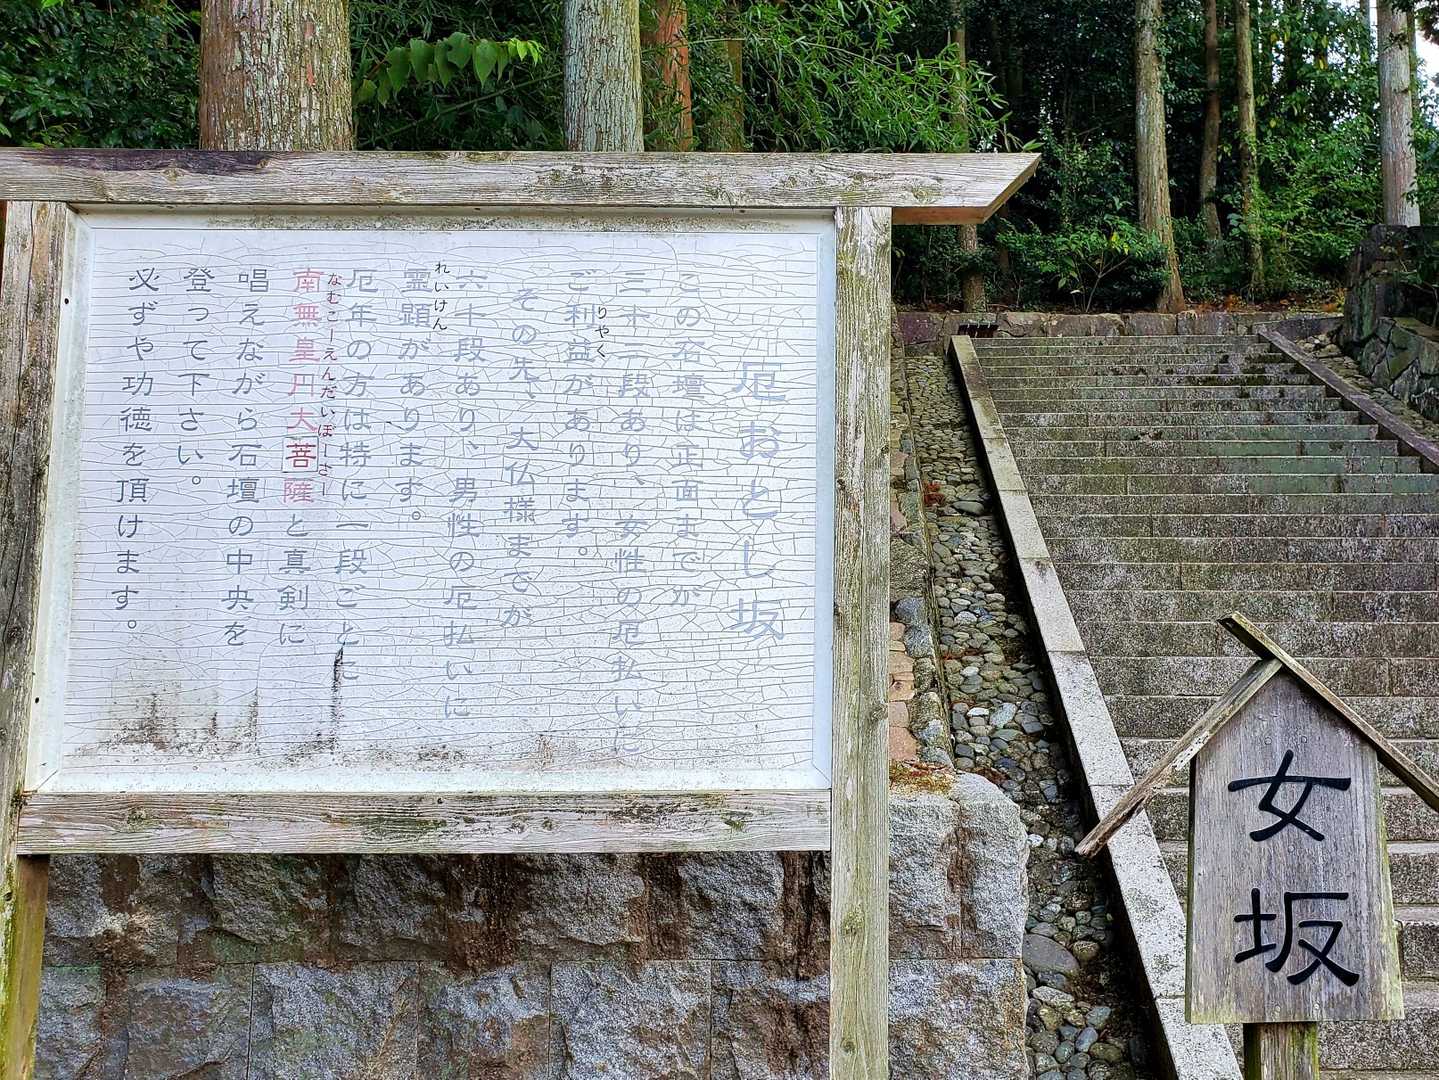 厄おとし坂
この石壇は正面までが
三十三段あり、女性の厄払いに
りやく
ご利益があります。
その先、大仏様までが
六十段あり、男性の厄払いに
れいけん
霊顕があります。
厄年の方は特に一段ごとに
なむこーえんだいぼーさー
南無皇円大菩薩と真剣に
唱えながら石壇の中央を
登って下さい。
必ずや功徳を頂けます。
女坂